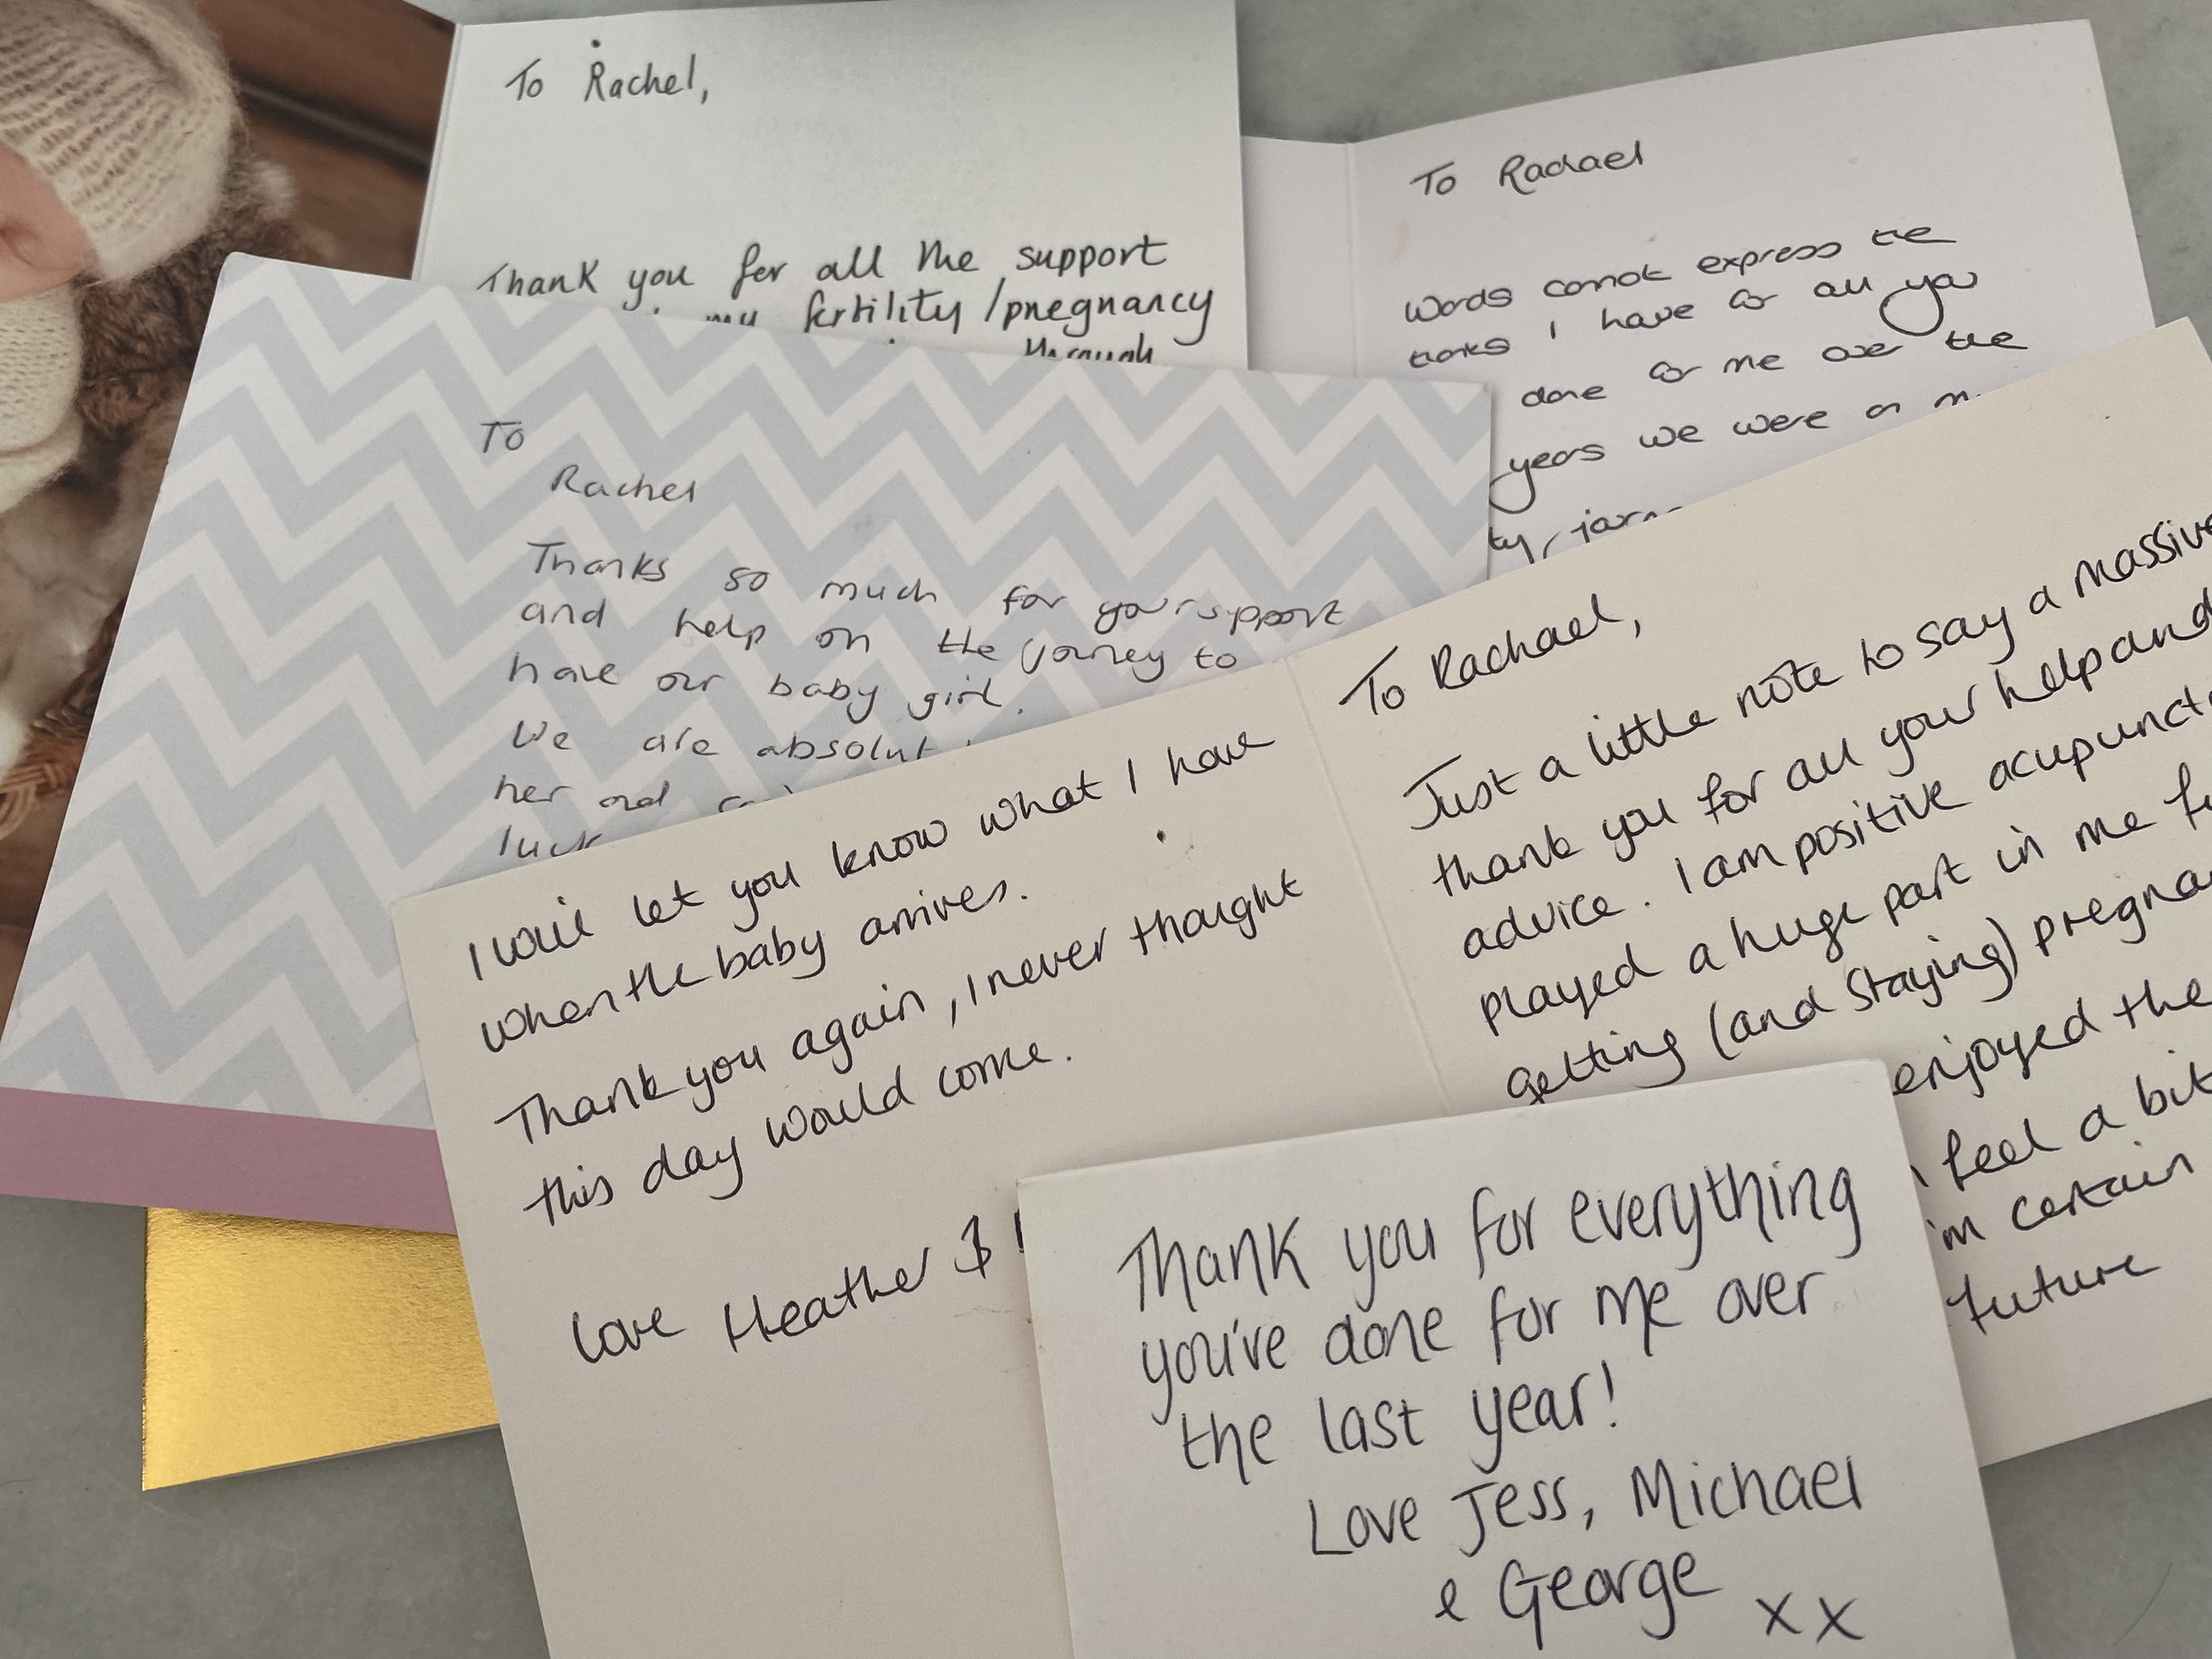 To Rachel,
Thank you for all the support
my fertility/pregnancy
through
To Rachael
Words cannot express the
thanks I have for all you
done for me over the
years we were on
To
Rachel
Thanks so much for your support
and help on the journey to
have our baby girl.
We are
her and
luck
I will let you know what I have
when the baby arrives.
Thank you again, I never thought
this day would come.
Love Heather &
To Rachael,
Just a little note to say a massive
thank you for all your help and
advice. I am positive
played a huge part in me
getting (and staying)
enjoyed the
feel a bit
certain
future
Thank you for everything
you've done for me over
the last year!
Love Jess, Michael
& George xx